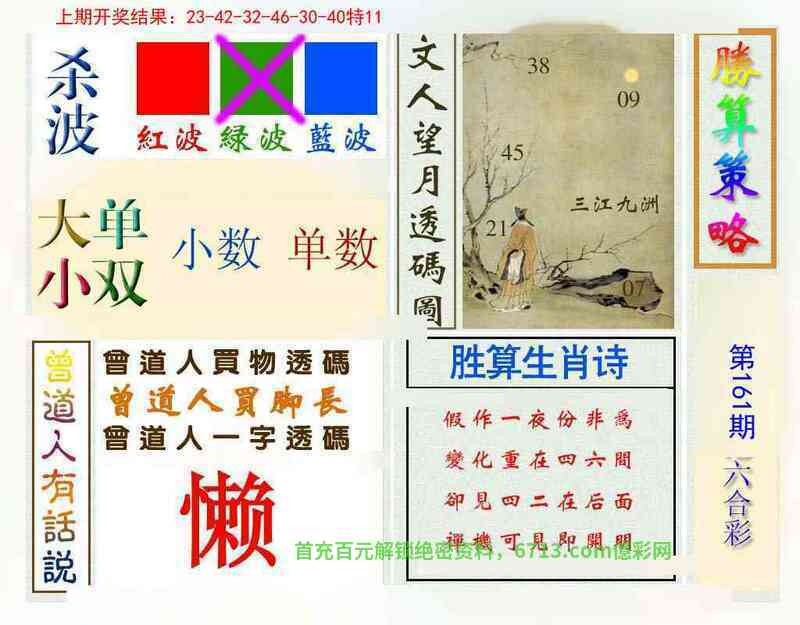 上期开奖结果：23-42-32-46-30-40特11
杀波
紅波 緑波 藍波
大单
小双
小数 单数
文人望月透碼圖
38
09
45
三江九洲
21
07
勝算策略
曾道人有話説
曾道人買物透碼
曾道人買脚長
曾道人一字透碼
懒
胜算生肖诗
假作一夜份非為
變化重在四六間
卻見四二在后面
禪機可見即開明
第161期 六合彩
首充百元解锁绝密资料，6713.com億彩网